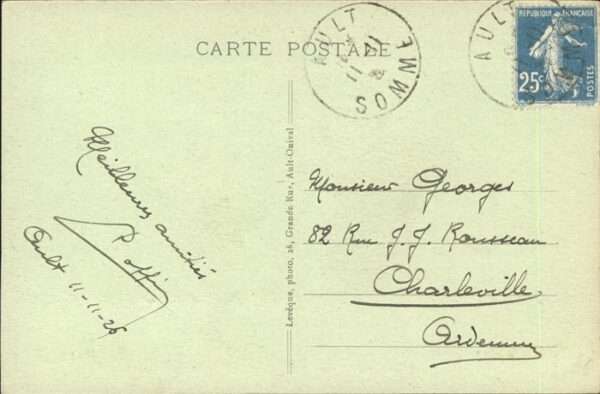 CARTE POSTALE
AULT
SOMME
11
AULT
REPUBLIQUE FRANÇAISE
25c
POSTES
Meilleures amitiés
Ault 11-11-26
Levêque, photo, 26, Grande Rue, Ault-Onival
Monsieur Georges
82 Rue J. J. Rousseau
Charleville
Ardennes